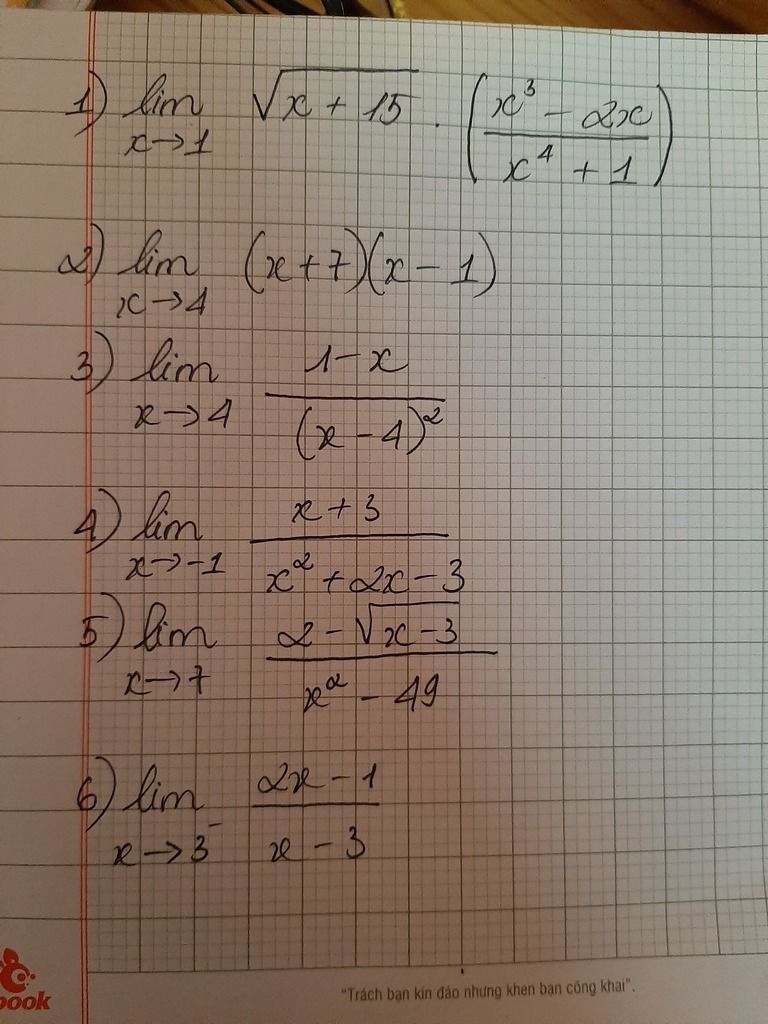 1) lim x→1 √(x + 15) · ((x³ − 2x)/(x⁴ + 1))
2) lim x→4 (x + 7)(x − 1)
3) lim x→4 (1 − x)/((x − 4)²)
4) lim x→−1 (x + 3)/(x² + 2x − 3)
5) lim x→7 (2 − √(x − 3))/(x² − 49)
6) lim x→3⁻ (2x − 1)/(x − 3)
book
"Trách bạn kín đáo nhưng khen bạn công khai".